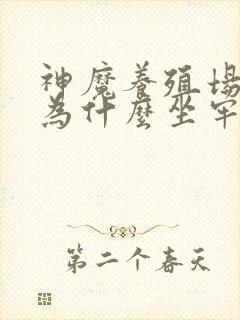 神魔養殖場
為什麼坐牢
第二个春天